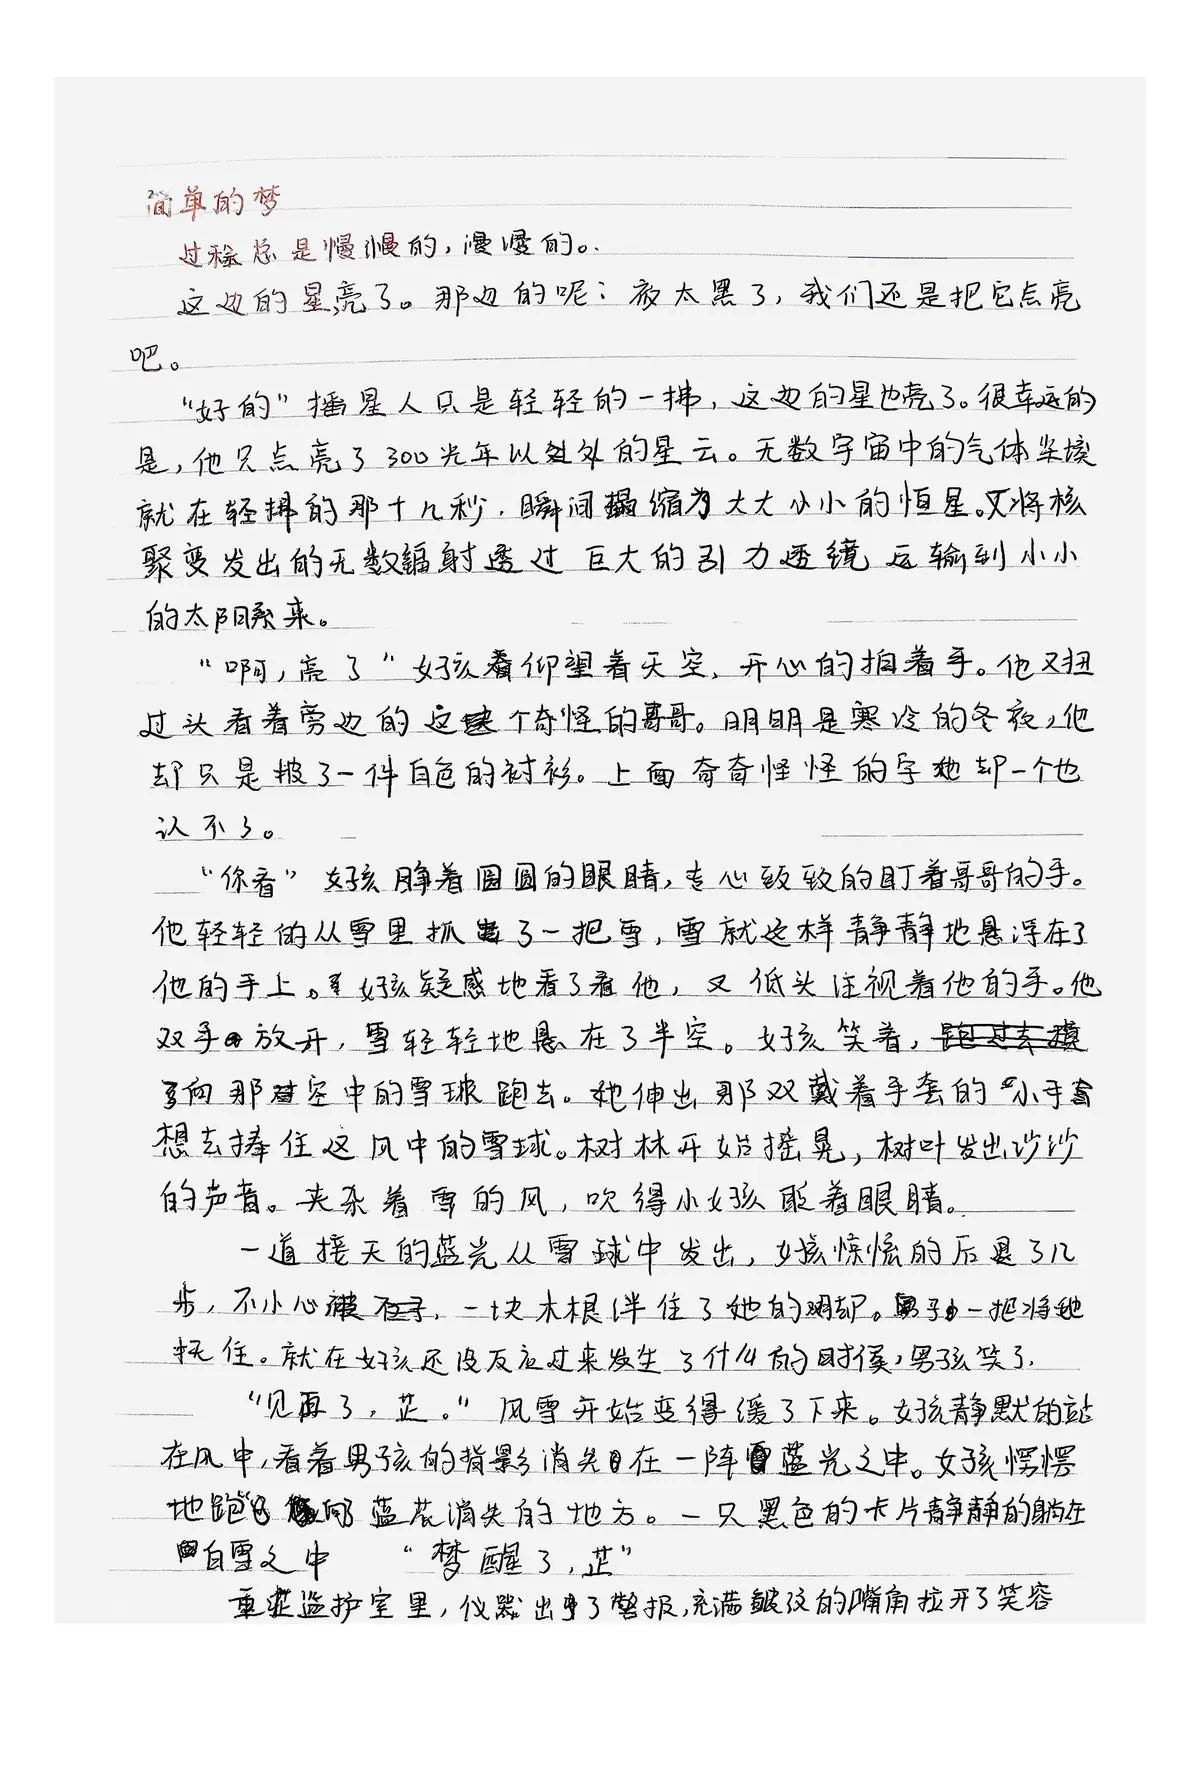 简单的梦
过程总是慢慢的,漫漫的。
这边的星亮了。那边的呢?夜太黑了,我们还是把它点亮
吧。
“好的”播星人只是轻轻的一拂,这边的星也亮了。很幸运的
是,他只点亮了300光年以外的星云。无数宇宙中的气体尘埃
就在轻拂的那十几秒,瞬间塌缩为大大小小的恒星。又将核
聚变发出的无数辐射透过巨大的引力透镜运输到小小
的太阳系来。
“啊,亮了”女孩仰望着天空,开心的拍着手。他又扭
过头看着旁边的这个奇怪的哥哥。明明是寒冷的冬夜,他
却只是披了一件白色的衬衫。上面奇奇怪怪的字她却一个也
认不了。
“你看”女孩睁着圆圆的眼睛,专心致致的盯着哥哥的手。
他轻轻的从雪里抓了一把雪,雪就这样静静地悬浮在了
他的手上。女孩疑惑地看了看他,又低头注视着他的手。他
双手放开,雪轻轻地悬在了半空。女孩笑着,
向那空中的雪球跑去。她伸出那双戴着手套的小手
想去捧住这风中的雪球。树林开始摇晃,树叶发出沙沙
的声音。夹杂着雪的风,吹得小女孩眨着眼睛。
一道接天的蓝光从雪球中发出,女孩惊慌的后退了几
步,不小心,一块木根绊住了她的脚。男子一把将她
扶住。就在女孩还没反应过来发生了什么的时候,男孩笑了.
“见再了,芷。”风雪开始变得缓了下来。女孩静默的站
在风中,看着男孩的背影消失在一阵蓝光之中。女孩愣愣
地跑向蓝芒消失的地方。一只黑色的卡片静静的躺在
白雪之中 “梦醒了,芷”
重症监护室里,仪器出了警报,充满皱纹的嘴角拉开了笑容